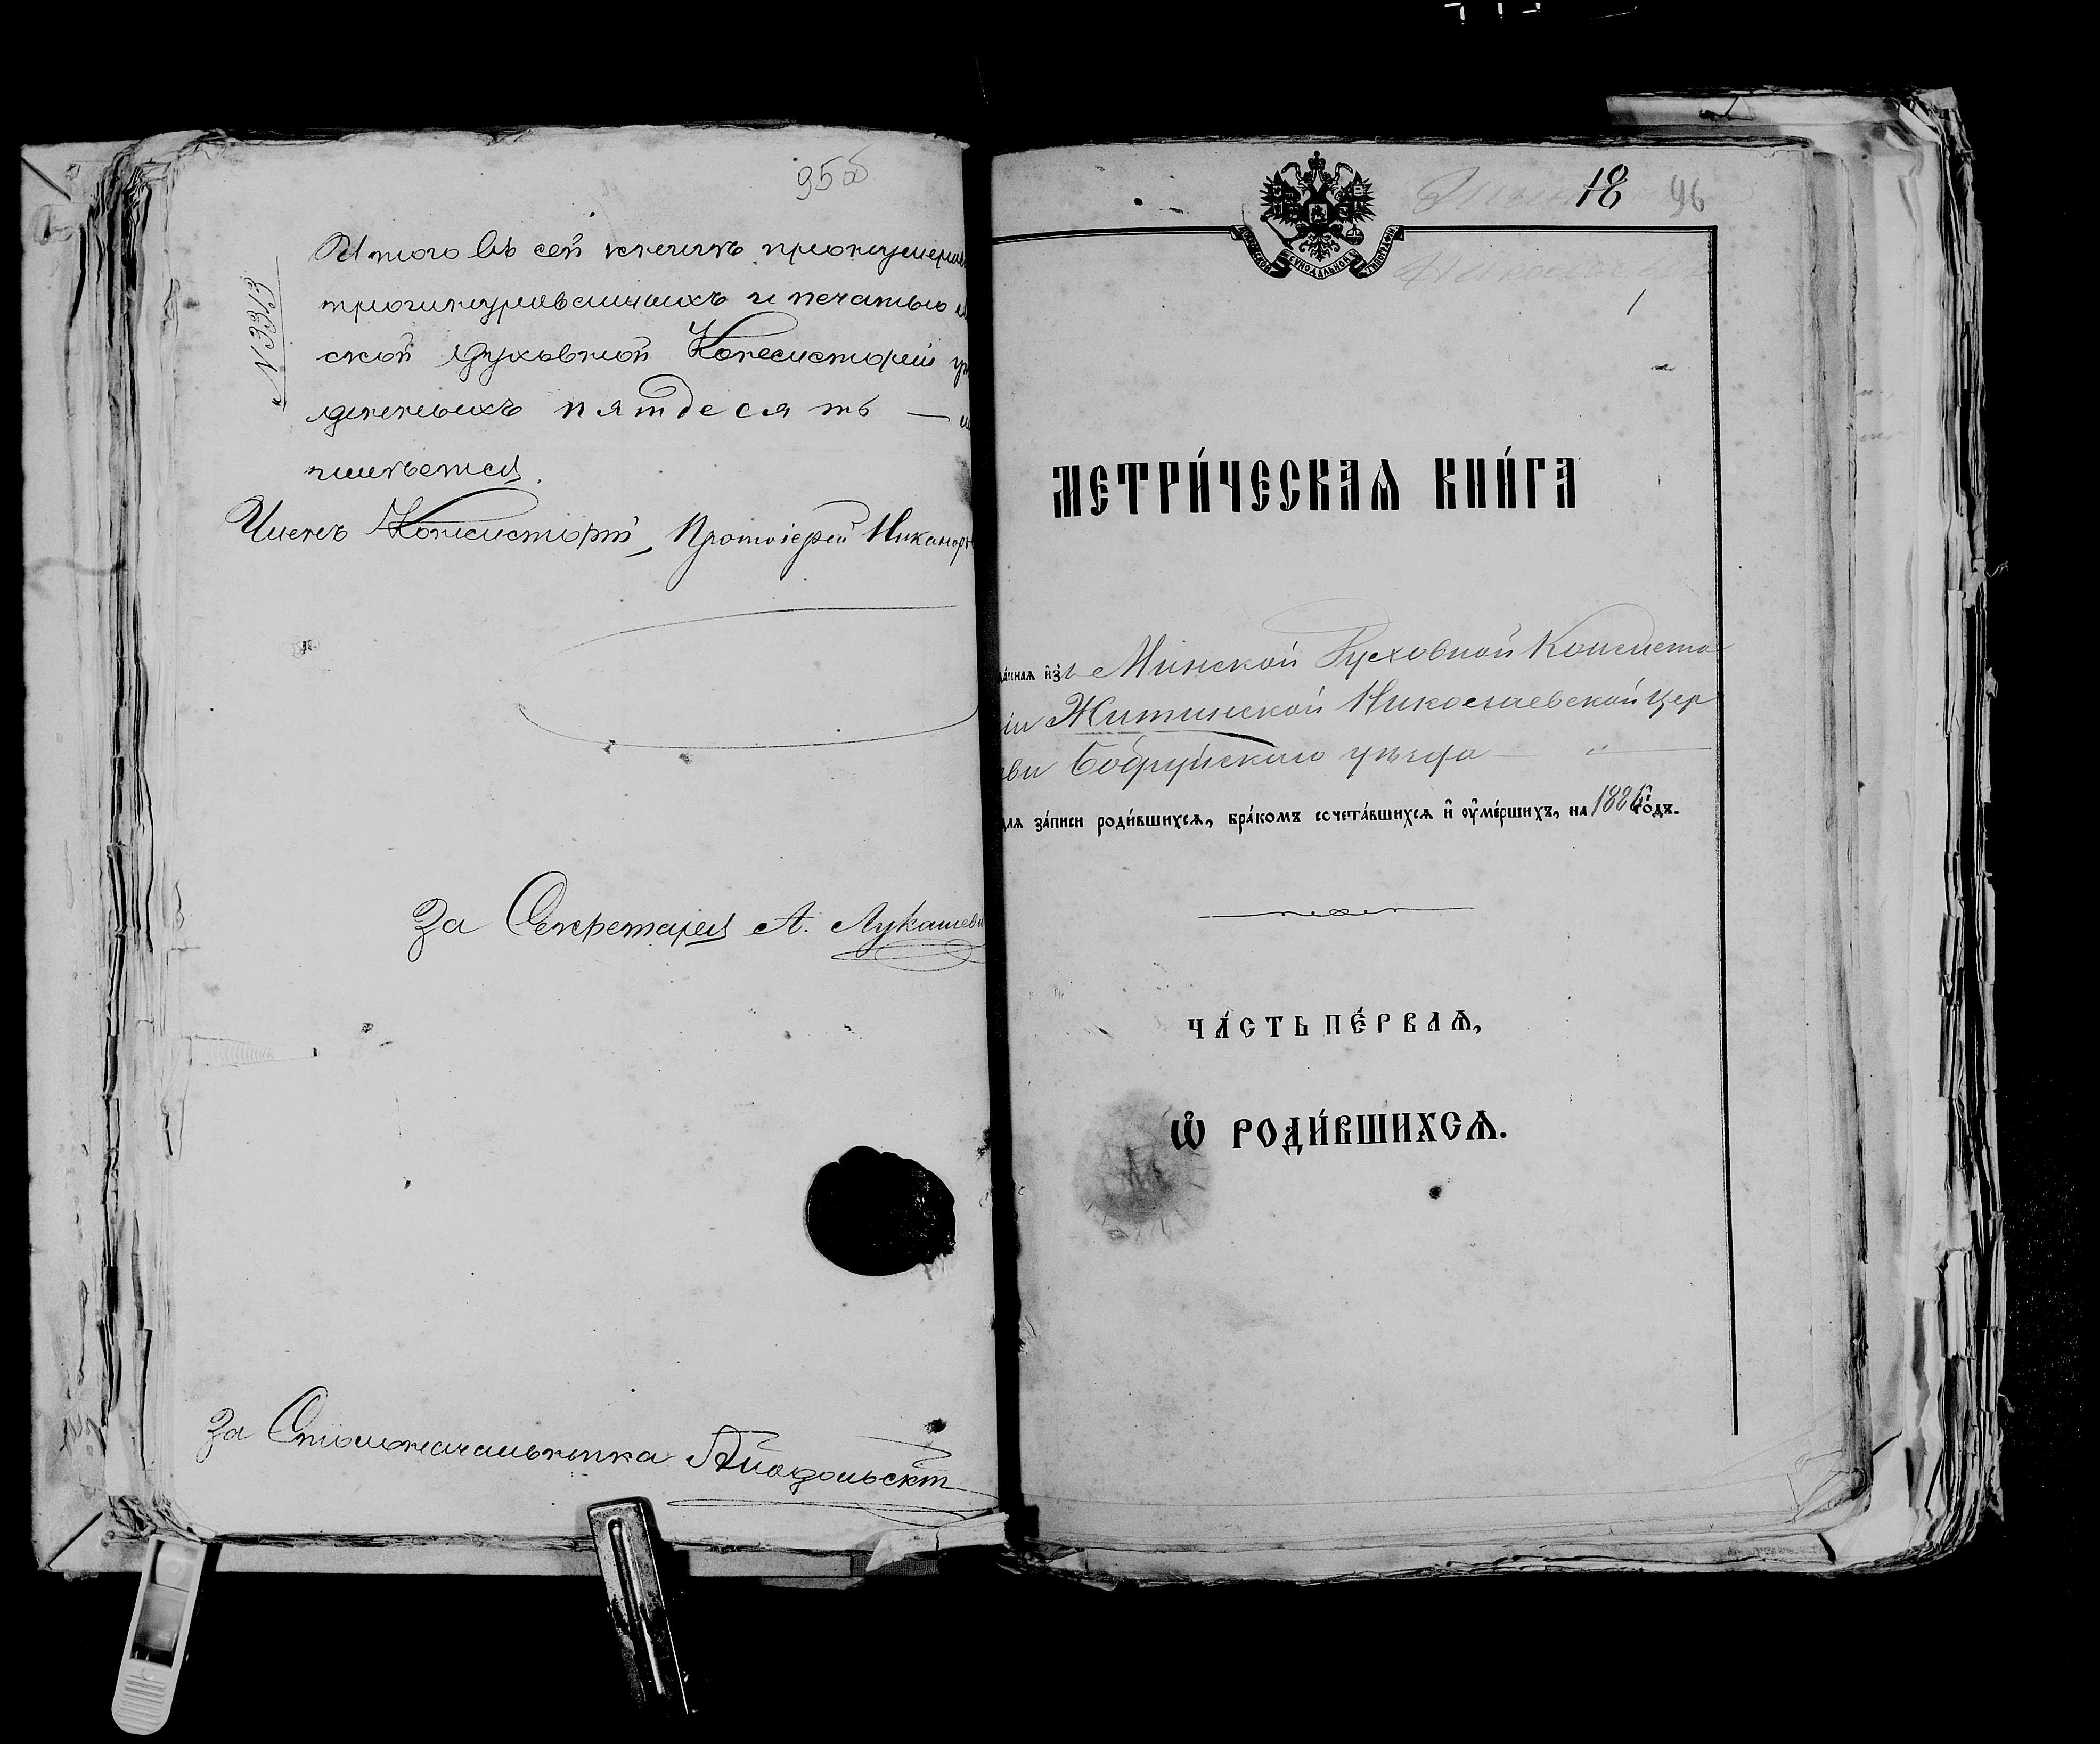 95об
Итого въ сей книгѣ пронумеров
прошнурованныхъ и печатью
ской Духовной Консисторіи
денныхъ пятдесятъ —
№ 3313
Членъ Консисторіи, Протоіерей Никаноръ
За Секретаря А. Лукашеви
За Столоначальника
18 96
МОСКОВСКОЙ СѴНОДАЛЬНОЙ ТИПОГРАФІИ
1
МЕТРИ́ЧЕСКАѦ КНИ́ГА
да́ннаѧ и҆зъ Минской Духовной Консисто
ріи Житинской Николаевской цер
кви Бобруйскаго уѣзда
для за́писи роди́вшихсѧ, бра́комъ сочета́вшихсѧ и҆ ᲂу҆ме́ршихъ, на годъ.
ЧА́СТЬ ПЕ́РВАѦ,
Ѡ҆ РОДИ́ВШИХСѦ.